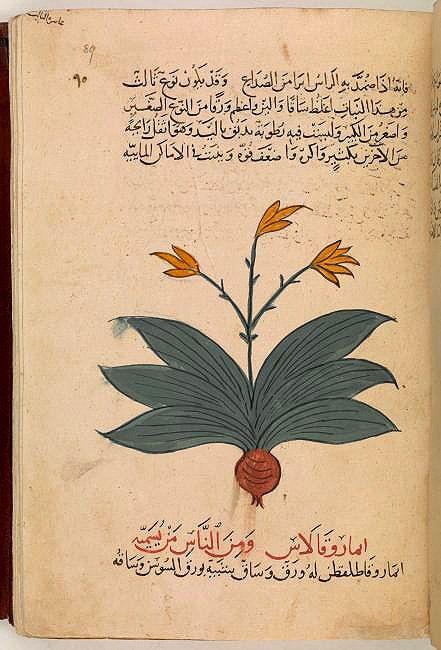 89
٩٠
فانه اذا ضمد به الراس ابرا من الصداع وقد يكون نوع ثالث
من هذا النبات اغلظ ساقا والين واعظم ورقا من النوع الصغير
واصغر من الكبير وليست فيه رطوبة تدبق باليد وهو اثقل رايحة
من الاخرين بكثير واكره واضعف قوة وينبت في الاماكن المايية
ايماروقالاس ومن الناس من يسميه
ايماروقاطلقطن له ورق وساق شبيه بورق السوسن وساقه